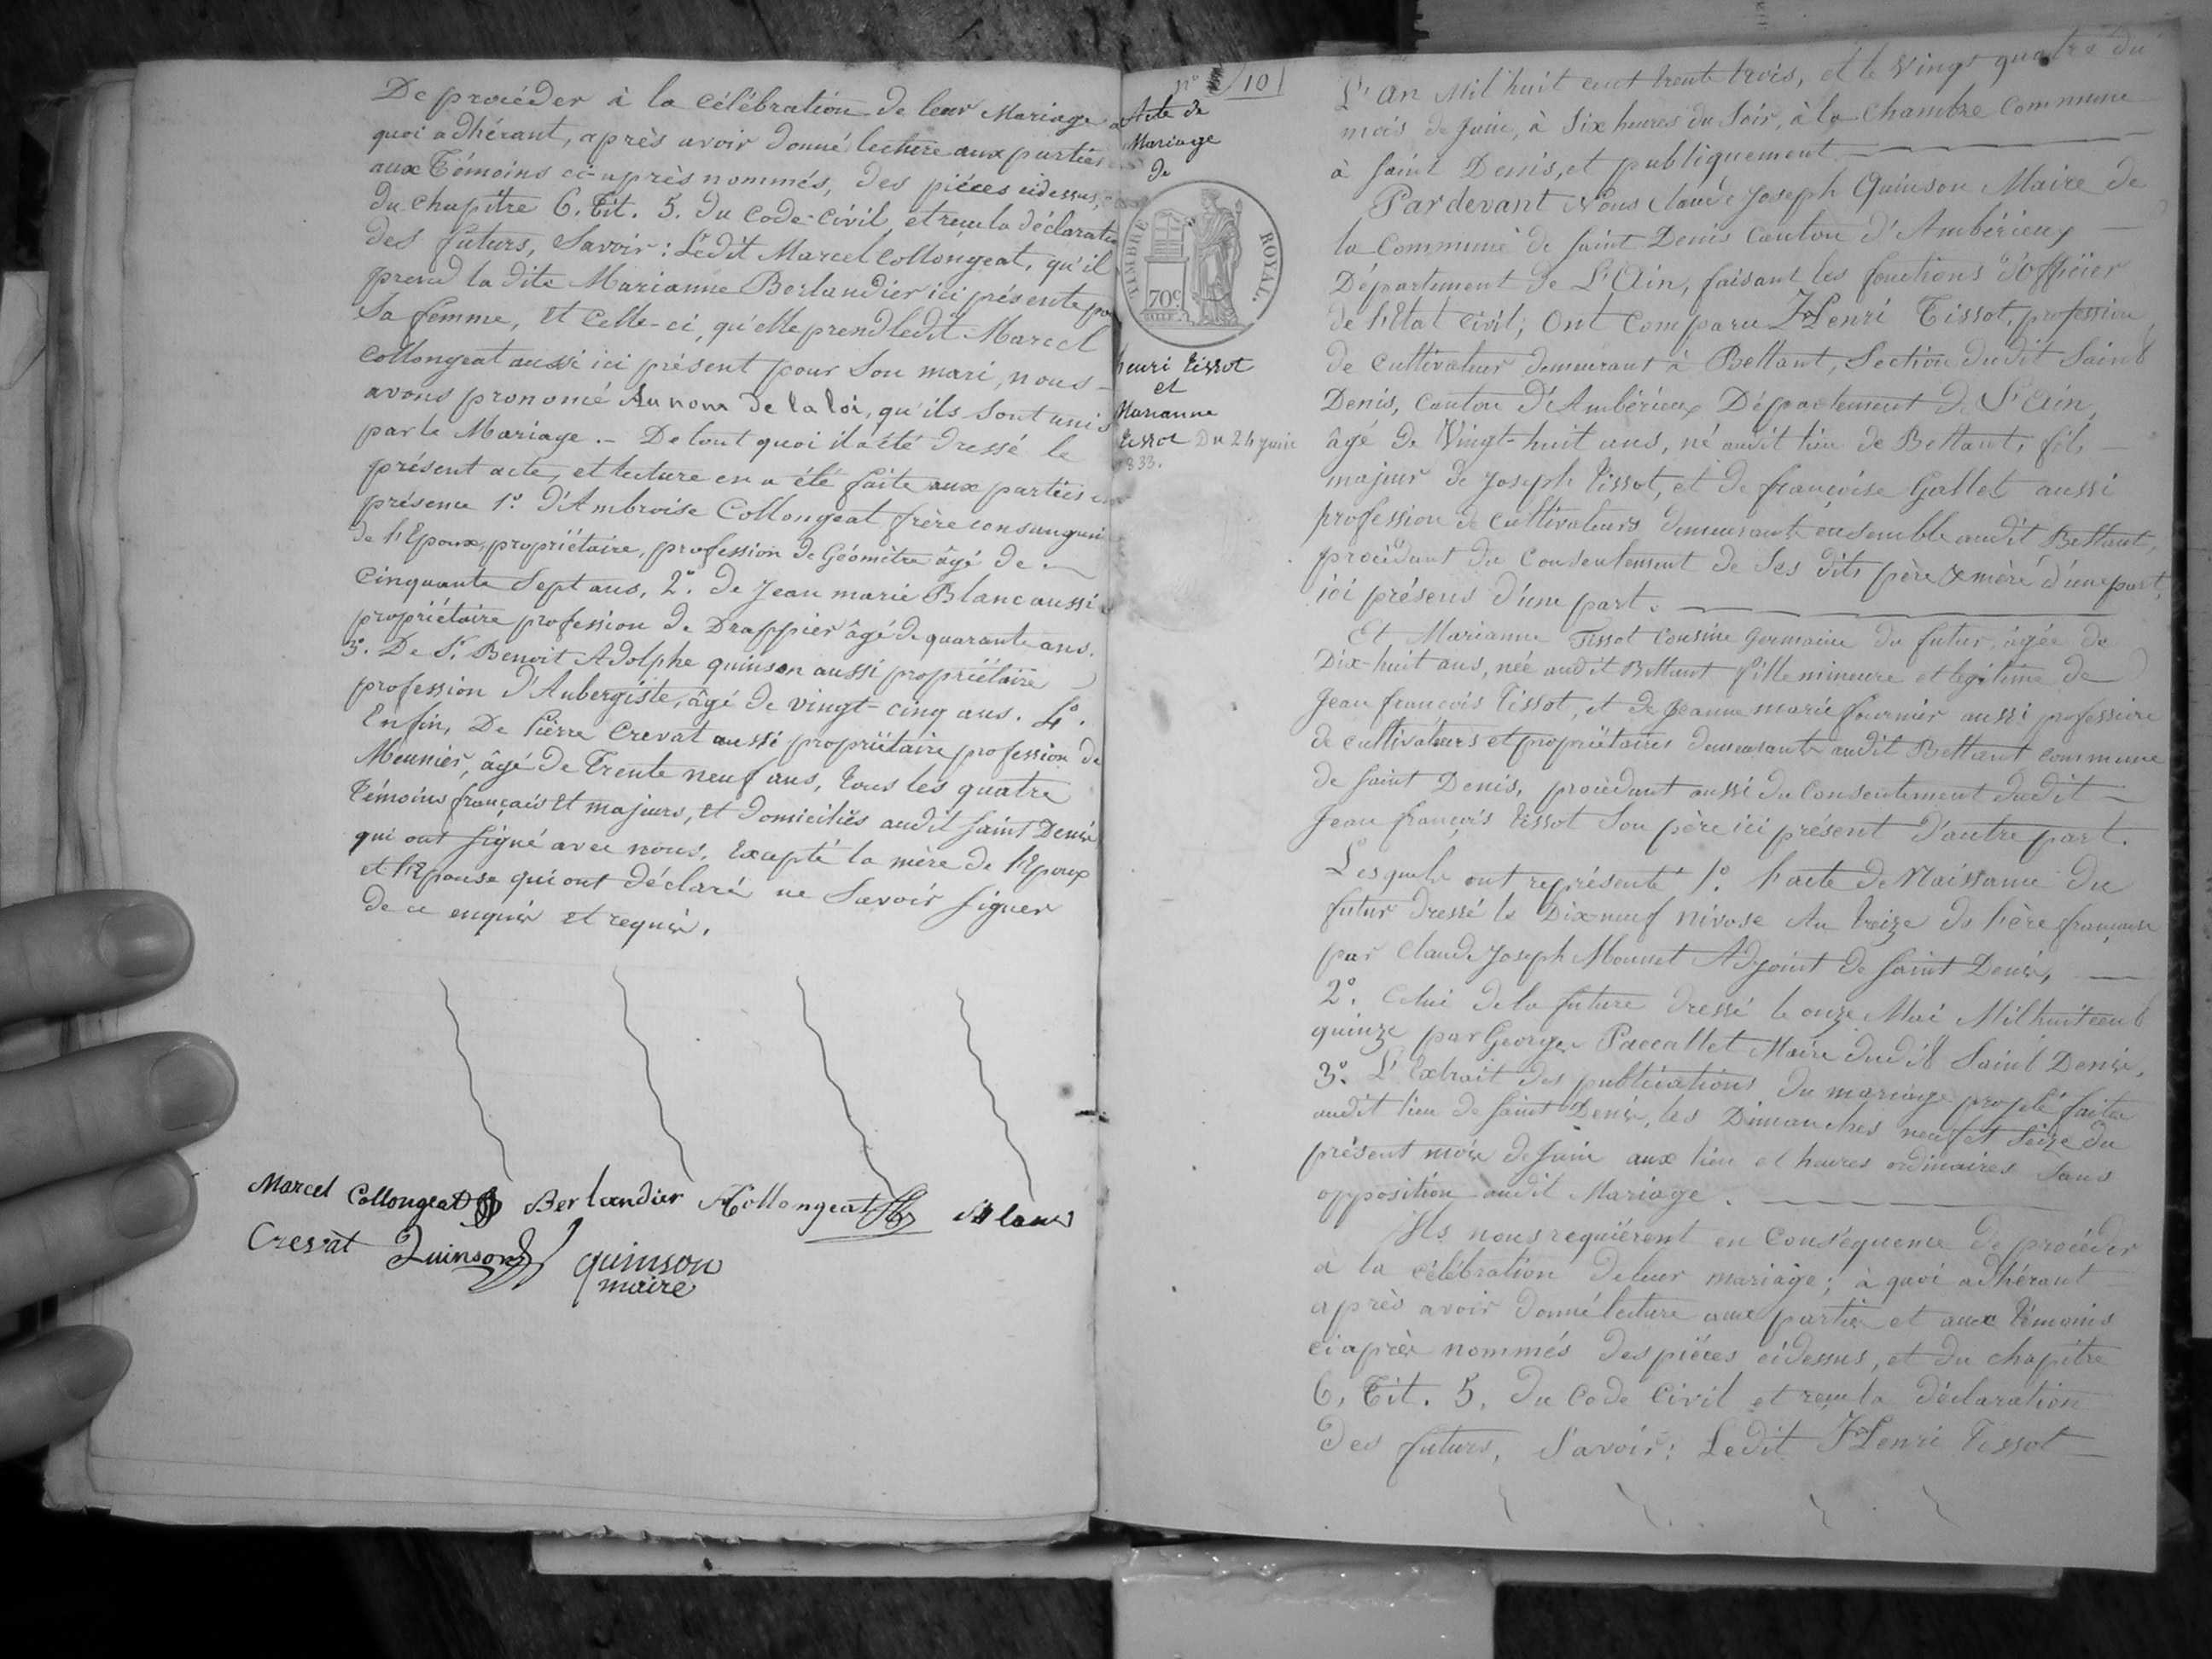 De procéder à la célébration de leur Mariage à
quoi adhérant, après avoir donné lecture aux parties
aux Témoins ci-après nommés, des pièces cidessus,
du chapître 6. Tit. 5. du Code-Civil et reçu la déclaration
des futurs, Savoir: Ledit Marcel Collongeat, qu'il
prend la dite Marianne Berlandier ici présente pour
Sa femme, et Celle-ci, qu'elle prend ledit Marcel
Collongeat aussi ici présent pour Son mari, nous
avons prononcé Au nom de la loi, qu'ils sont unis
par le Mariage. - De tout quoi il a été dressé le
présent acte, et lecture en a été faite aux parties en
présence 1.º d'Ambroise Collongeat frère consanguin
de l'Epoux, propriétaire, profession de Géomètre âgé de
Cinquante Sept ans, 2.º de Jean marie Blanc aussi
propriétaire profession de Drappier âgé de quarante ans.
3.º De Sr. Benoit Adolphe quinson aussi propriétaire
profession d'Aubergiste, âgé de vingt-cinq ans. 4.º
Enfin, De Pierre Crevat aussi propriétaire profession de
Meunier, âgé de Trente neuf ans, tous les quatre
témoins français et majeurs, et domiciliés audit Saint Denis
qui ont signé avec nous, Excepté la mère de l'Epoux
et l'Epouse qui ont déclaré ne Savoir signer
de ce enquis et requis.
Marcel Collongeat Berlandier Collongeat Blanc
Crevat Quinson quinson
maire
nº 10
Acte de
Mariage
de
TIMBRE ROYAL.
70c
henri tissot
et
Marianne
tissot Du 24 juin
1833.
L'an Mil huit cent trente trois, et le Vingt quatre du
mois de Juin, à Six heures du Soir, à la Chambre Commune
à Saint Denis, et publiquement
Pardevant Nous Claude Joseph Quinson Maire de
la Commune de Saint Denis Canton d'Ambérieux
Département de L'Ain, faisant les fonctions d'officier
de l'Etat Civil; Ont Comparu Henri Tissot, profession
de Cultivateur demeurant à Bettant, Section dudit Saint
Denis, Canton d'Ambérieux Département de l'Ain,
âgé de Vingt-huit ans, né audit lieu de Bettant, fils
majeur de Joseph tissot, et de françoise Gallet aussi
profession de cultivateurs demeurant ensemble audit Bettant,
procédant du Consentement de Ses dits père & mère d'une part,
ici présens d'une part.
Et Marianne Tissot Cousine Germaine du futur, âgée de
Dix-huit ans, née audit Bettant fille mineure et légitime de
Jean françois tissot, et de Jeanne marie fournier aussi profession
de cultivateurs et propriétaires demeurant audit Bettant commune
de Saint Denis, procédant aussi du Consentement dudit
Jean françois tissot Son père ici présent d'autre part.
Lesquels ont représenté 1.º l'acte de Naissance du
futur dressé le Dix-neuf nivose An treize de l'ère française
par Claude Joseph Adjoint de Saint Denis,
2.º Celui de la future dressé le onze Mai Mil huit cent
quinze par George Paccallet Maire dudit Saint Denis,
3.º L'Extrait des publications du mariage projeté faites
audit lieu de Saint Denis, les Dimanches neuf et seize du
présent mois de Juin aux lieu et heures ordinaires Sans
opposition audit Mariage.
Ils nous requièrent en Conséquence de procéder
à la célébration de leur mariage; à quoi adhérant
après avoir donné lecture aux parties et aux témoins
ci après nommés des pièces cidessus, et du chapitre
6, Tit. 5, du Code Civil et reçu la déclaration
des futurs, Savoir: Ledit Henri Tissot